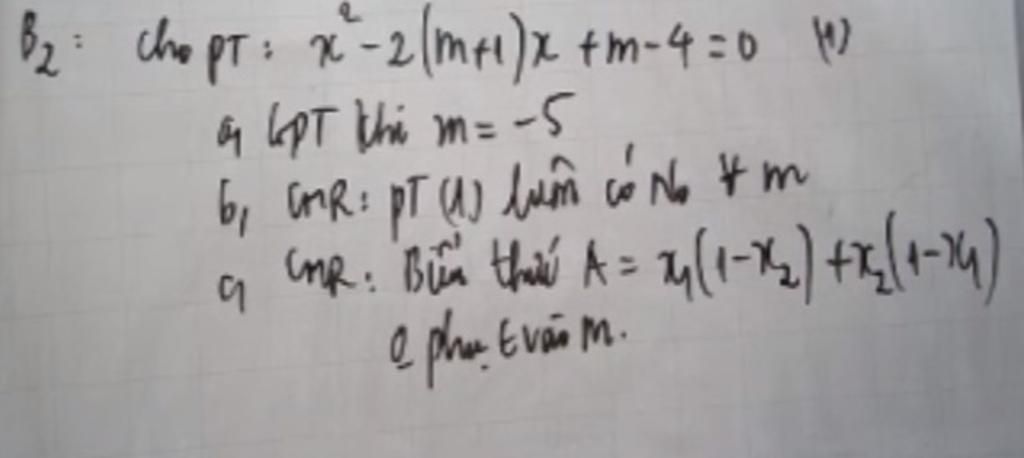 B2: Cho PT: x² - 2(m+1)x + m - 4 = 0 (1)
a, GPT khi m = -5
b, CMR: PT (1) luôn có No ∀ m
c, CMR: Biểu thức A = x₁(1-x₂) + x₂(1-x₁)
o phụ t vào m.